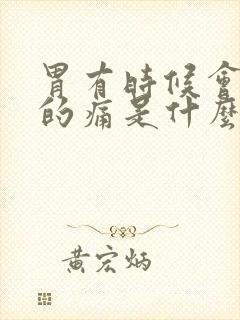 胃有時候會
的痛是什麼
黃宏炳